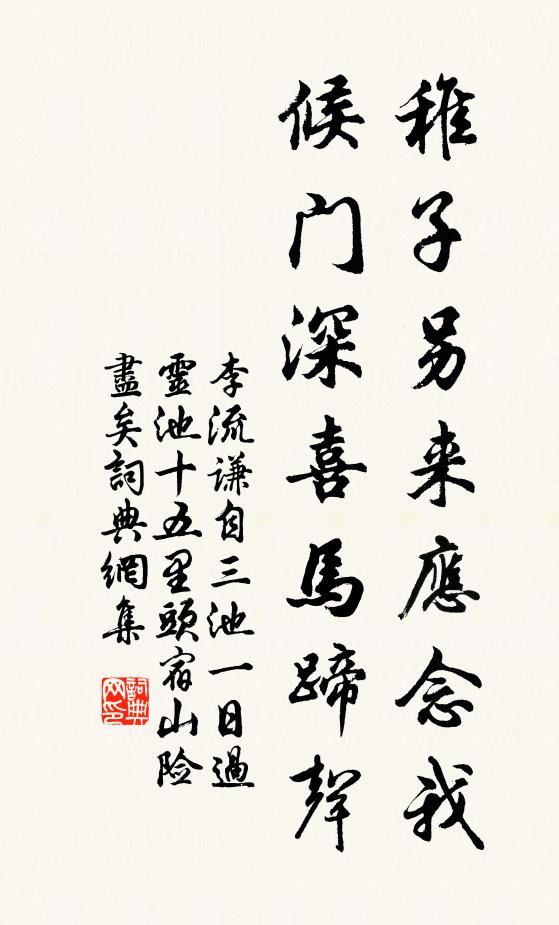 稚子别来應念我
候门深喜馬蹄聲
李流謙自三池一日過
靈池十五里頭宿山险
盡矣詞典網集
詞典网印